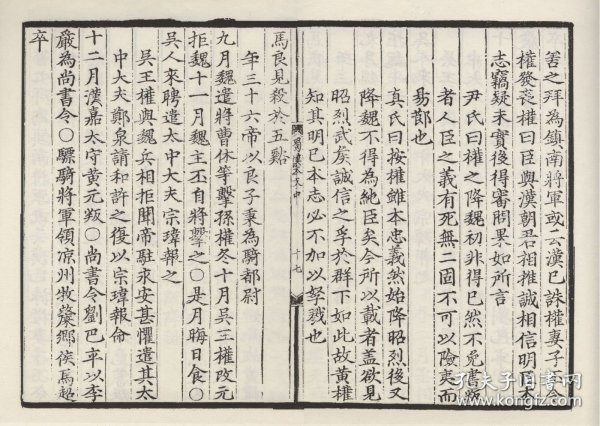 善之拜為鎮南將軍或云漢已誅權妻子令
權發喪權曰臣與漢朝君相推誠相信明臣本
志竊疑未實後得審問果如所言
尹氏曰權之降魏初非得已然不免書降
者人臣之義有死無二固不可以險夷而
易節也
真氏曰按權雖本忠義然始降昭烈後又
降魏不得為純臣矣今所以載者蓋欲見
昭烈武矦誠信之孚於群下如此故黃權
知其明已本志必不加以孥戮也
蜀漢本末中
十七
馬良見殺於五谿
年三十六帝以良子秉為騎都尉
九月魏遣將曹休等擊孫權冬十月吳王權改元
拒魏十一月魏主丕自將擊之〇是月晦日食〇
吳人來聘遣太中大夫宗瑋報之
吳王權與魏兵相拒聞帝駐永安甚懼遣其太
中大夫鄭泉請和許之復以宗瑋報命
十二月漢嘉太守黃元叛〇尚書令劉巴卒以李
嚴為尚書令〇驃騎將軍領涼州牧斄鄉侯馬超
卒
孔夫子旧书网